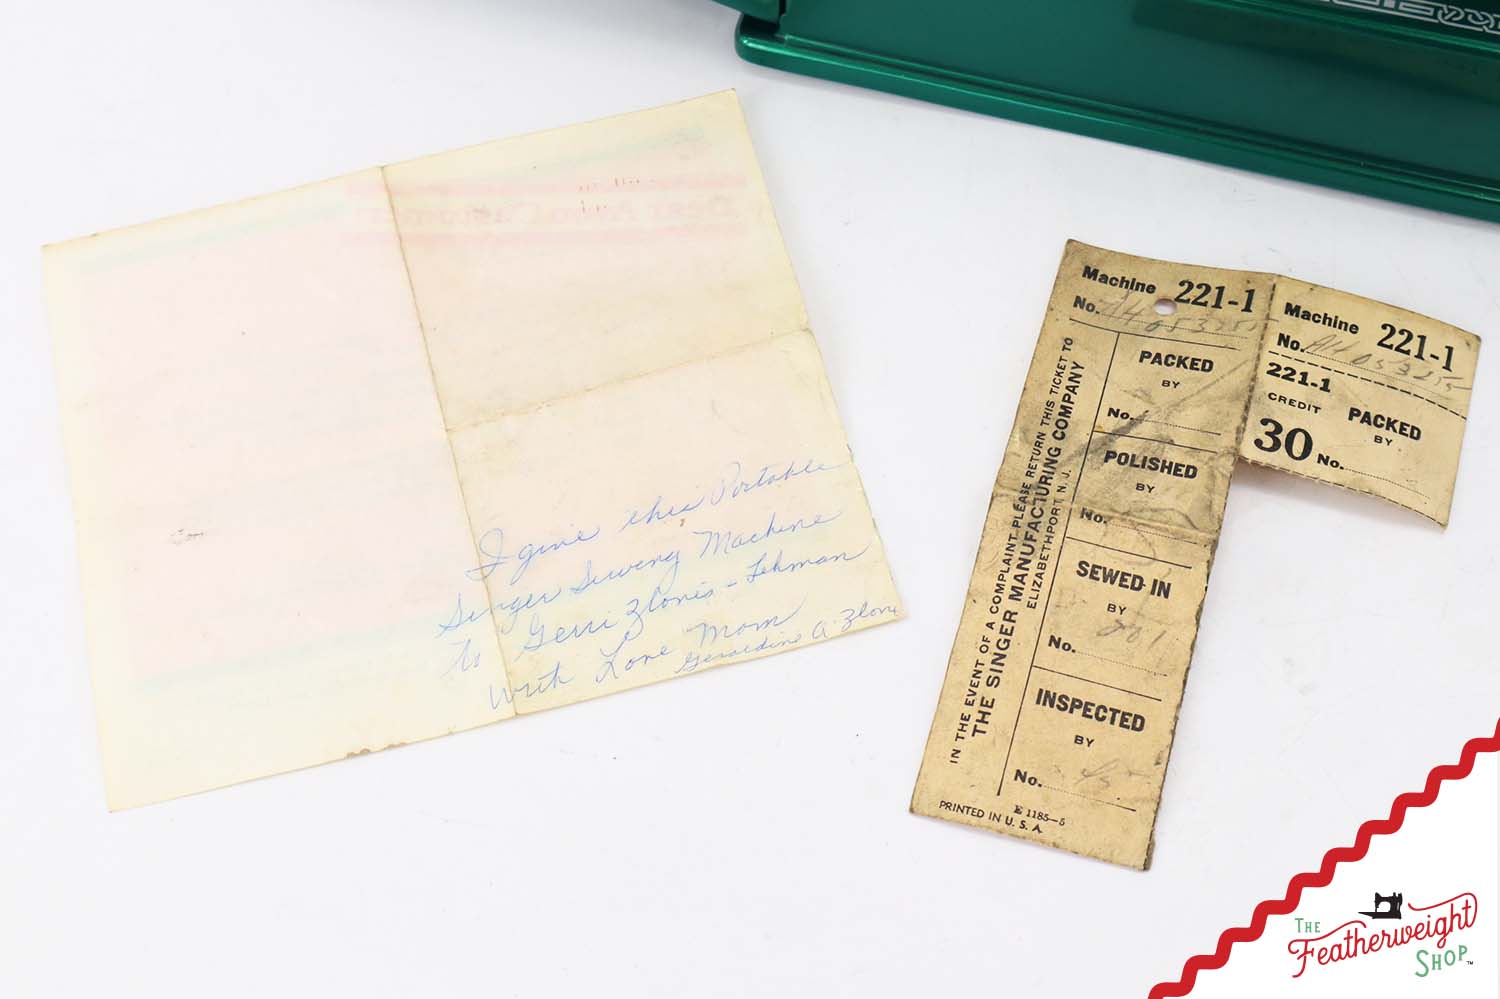 Dear Avon Customer
I give this Portable
Singer Sewing Machine
to Gerri Zlonis-Lehman
with Love Mom
Geraldine A. Zlonis
Machine 221-1
No. AH 053255
PACKED
BY
No.
POLISHED
BY
No.
SEWED IN
BY
No. 201
INSPECTED
BY
No. 45
IN THE EVENT OF A COMPLAINT PLEASE RETURN THIS TICKET TO
THE SINGER MANUFACTURING COMPANY
ELIZABETHPORT, N. J.
E 1185-5
PRINTED IN U. S. A.
Machine 221-1
No. AH 053255
221-1
CREDIT
30
PACKED
BY
No.
THE
Featherweight
SHOP™